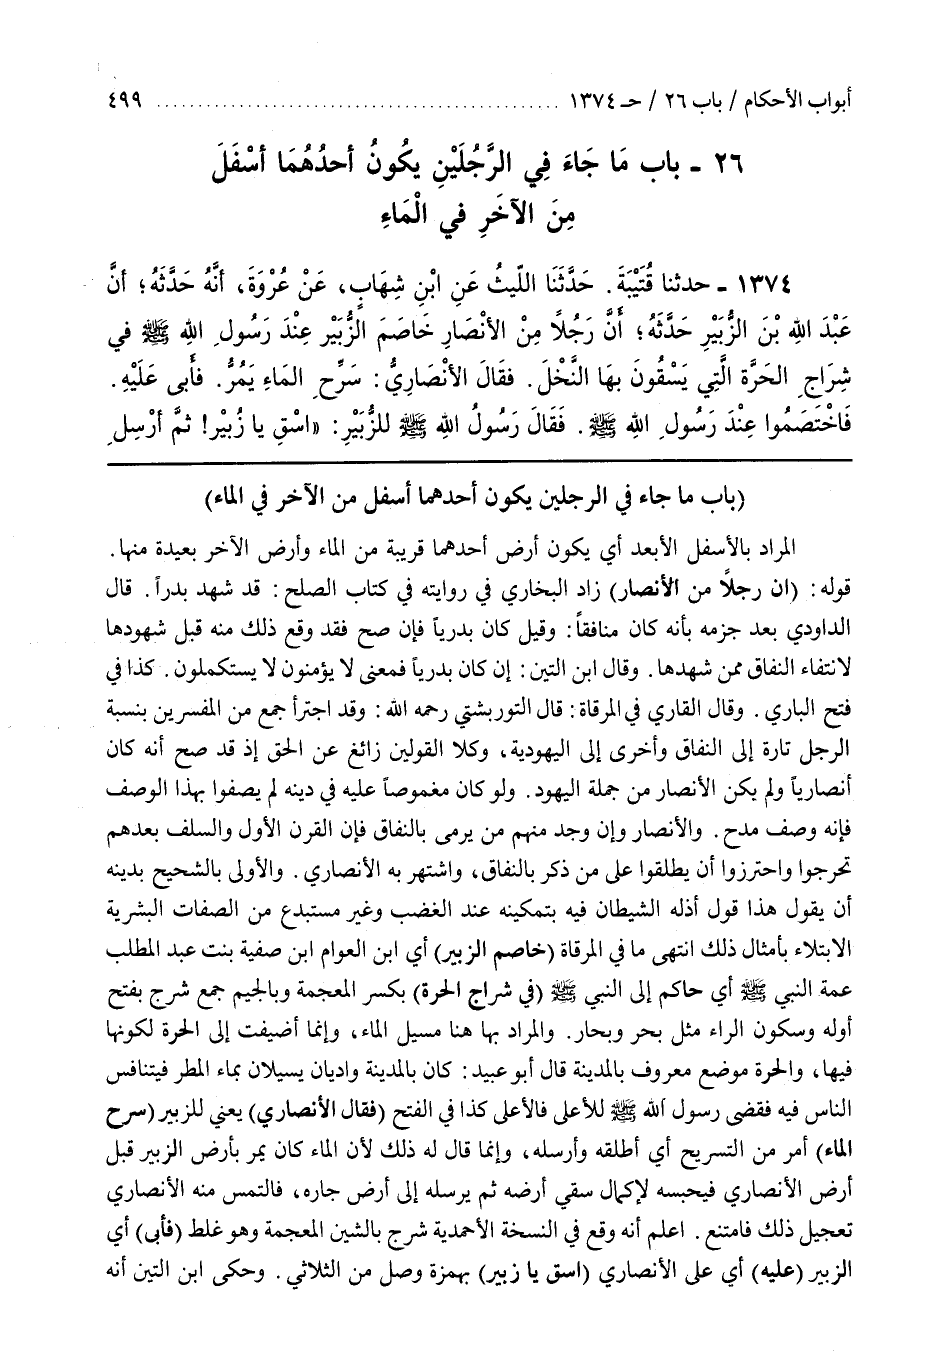 أبواب الأحكام / باب ٢٦ / حـ ١٣٧٤ ............................................... ٤٩٩
٢٦ ـ باب مَا جَاءَ فِي الرَّجُلَيْنِ يكُونُ أحدُهُمَا أسْفَلَ
مِنَ الآخَرِ في الْمَاءِ
١٣٧٤ ـ حدثنا قُتَيْبَةَ. حَدَّثَنَا اللّيثُ عَنِ ابْنِ شِهَابٍ، عَنْ عُرْوَةَ، أنَّهُ حَدَّثَهُ؛ أنَّ
عَبْدَ اللهِ بْنَ الزُّبَيْرِ حَدَّثَهُ؛ أنَّ رَجُلاً مِنْ الأنْصَارِ خَاصَمَ الزُّبَيْرِ عِنْدَ رَسُولِ اللهِ ﷺ في
شِرَاجِ الحَرَّةِ الَّتِي يَسْقُونَ بِهَا النَّخْلَ. فقَالَ الأنْصَارِيُّ: سَرِّحِ المَاءِ يَمُرُّ. فأبى عَلَيْهِ.
فَاخْتَصَمُوا عِنْدَ رَسُولِ اللهِ ﷺ. فَقَالَ رَسُولُ اللهِ ﷺ للزُّبَيْرِ: «اسْقِ يا زُبَيْر! ثمَّ أرْسِلِ
(باب ما جاء في الرجلين يكون أحدهما أسفل من الآخر في الماء)
المراد بالأسفل الأبعد أي يكون أرض أحدهما قريبة من الماء وأرض الآخر بعيدة منها.
قوله: (ان رجلاً من الأنصار) زاد البخاري في روايته في كتاب الصلح: قد شهد بدراً. قال
الداودي بعد جزمه بأنه كان منافقاً: وقيل كان بدرياً فإن صح فقد وقع ذلك منه قبل شهودها
لانتفاء النفاق ممن شهدها. وقال ابن التين: إن كان بدرياً فمعنى لا يؤمنون لا يستكملون. كذا في
فتح الباري. وقال القاري في المرقاة: قال التوربشتي رحمه الله: وقد اجترأ جمع من المفسرين بنسبة
الرجل تارة إلى النفاق وأخرى إلى اليهودية، وكلا القولين زائغ عن الحق إذ قد صح أنه كان
أنصارياً ولم يكن الأنصار من جملة اليهود. ولو كان مغموصاً عليه في دينه لم يصفوا بهذا الوصف
فإنه وصف مدح. والأنصار وإن وجد منهم من يرمى بالنفاق فإن القرن الأول والسلف بعدهم
تحرجوا واحترزوا أن يطلقوا على من ذكر بالنفاق، واشتهر به الأنصاري. والأولى بالشحيح بدينه
أن يقول هذا قول أذله الشيطان فيه بتمكينه عند الغضب وغير مستبدع من الصفات البشرية
الابتلاء بأمثال ذلك انتهى ما في المرقاة (خاصم الزبير) أي ابن العوام ابن صفية بنت عبد المطلب
عمة النبي ﷺ أي حاكم إلى النبي ﷺ (في شراج الحرة) بكسر المعجمة وبالجيم جمع شرج بفتح
أوله وسكون الراء مثل بحر وبحار. والمراد بها هنا مسيل الماء، وإنما أضيفت إلى الحرة لكونها
فيها، والحرة موضع معروف بالمدينة قال أبو عبيد: كان بالمدينة واديان يسيلان بماء المطر فيتنافس
الناس فيه فقضى رسول الله ﷺ للأعلى فالأعلى كذا في الفتح (فقال الأنصاري) يعني للزبير (سرح
الماء) أمر من التسريح أي أطلقه وأرسله، وإنما قال له ذلك لأن الماء كان يمر بأرض الزبير قبل
أرض الأنصاري فيحبسه لإكمال سقي أرضه ثم يرسله إلى أرض جاره، فالتمس منه الأنصاري
تعجيل ذلك فامتنع. اعلم أنه وقع في النسخة الأحمدية شرج بالشين المعجمة وهو غلط (فأبى) أي
الزبير (عليه) أي على الأنصاري (اسق يا زبير) بهمزة وصل من الثلاثي. وحكى ابن التين أنه